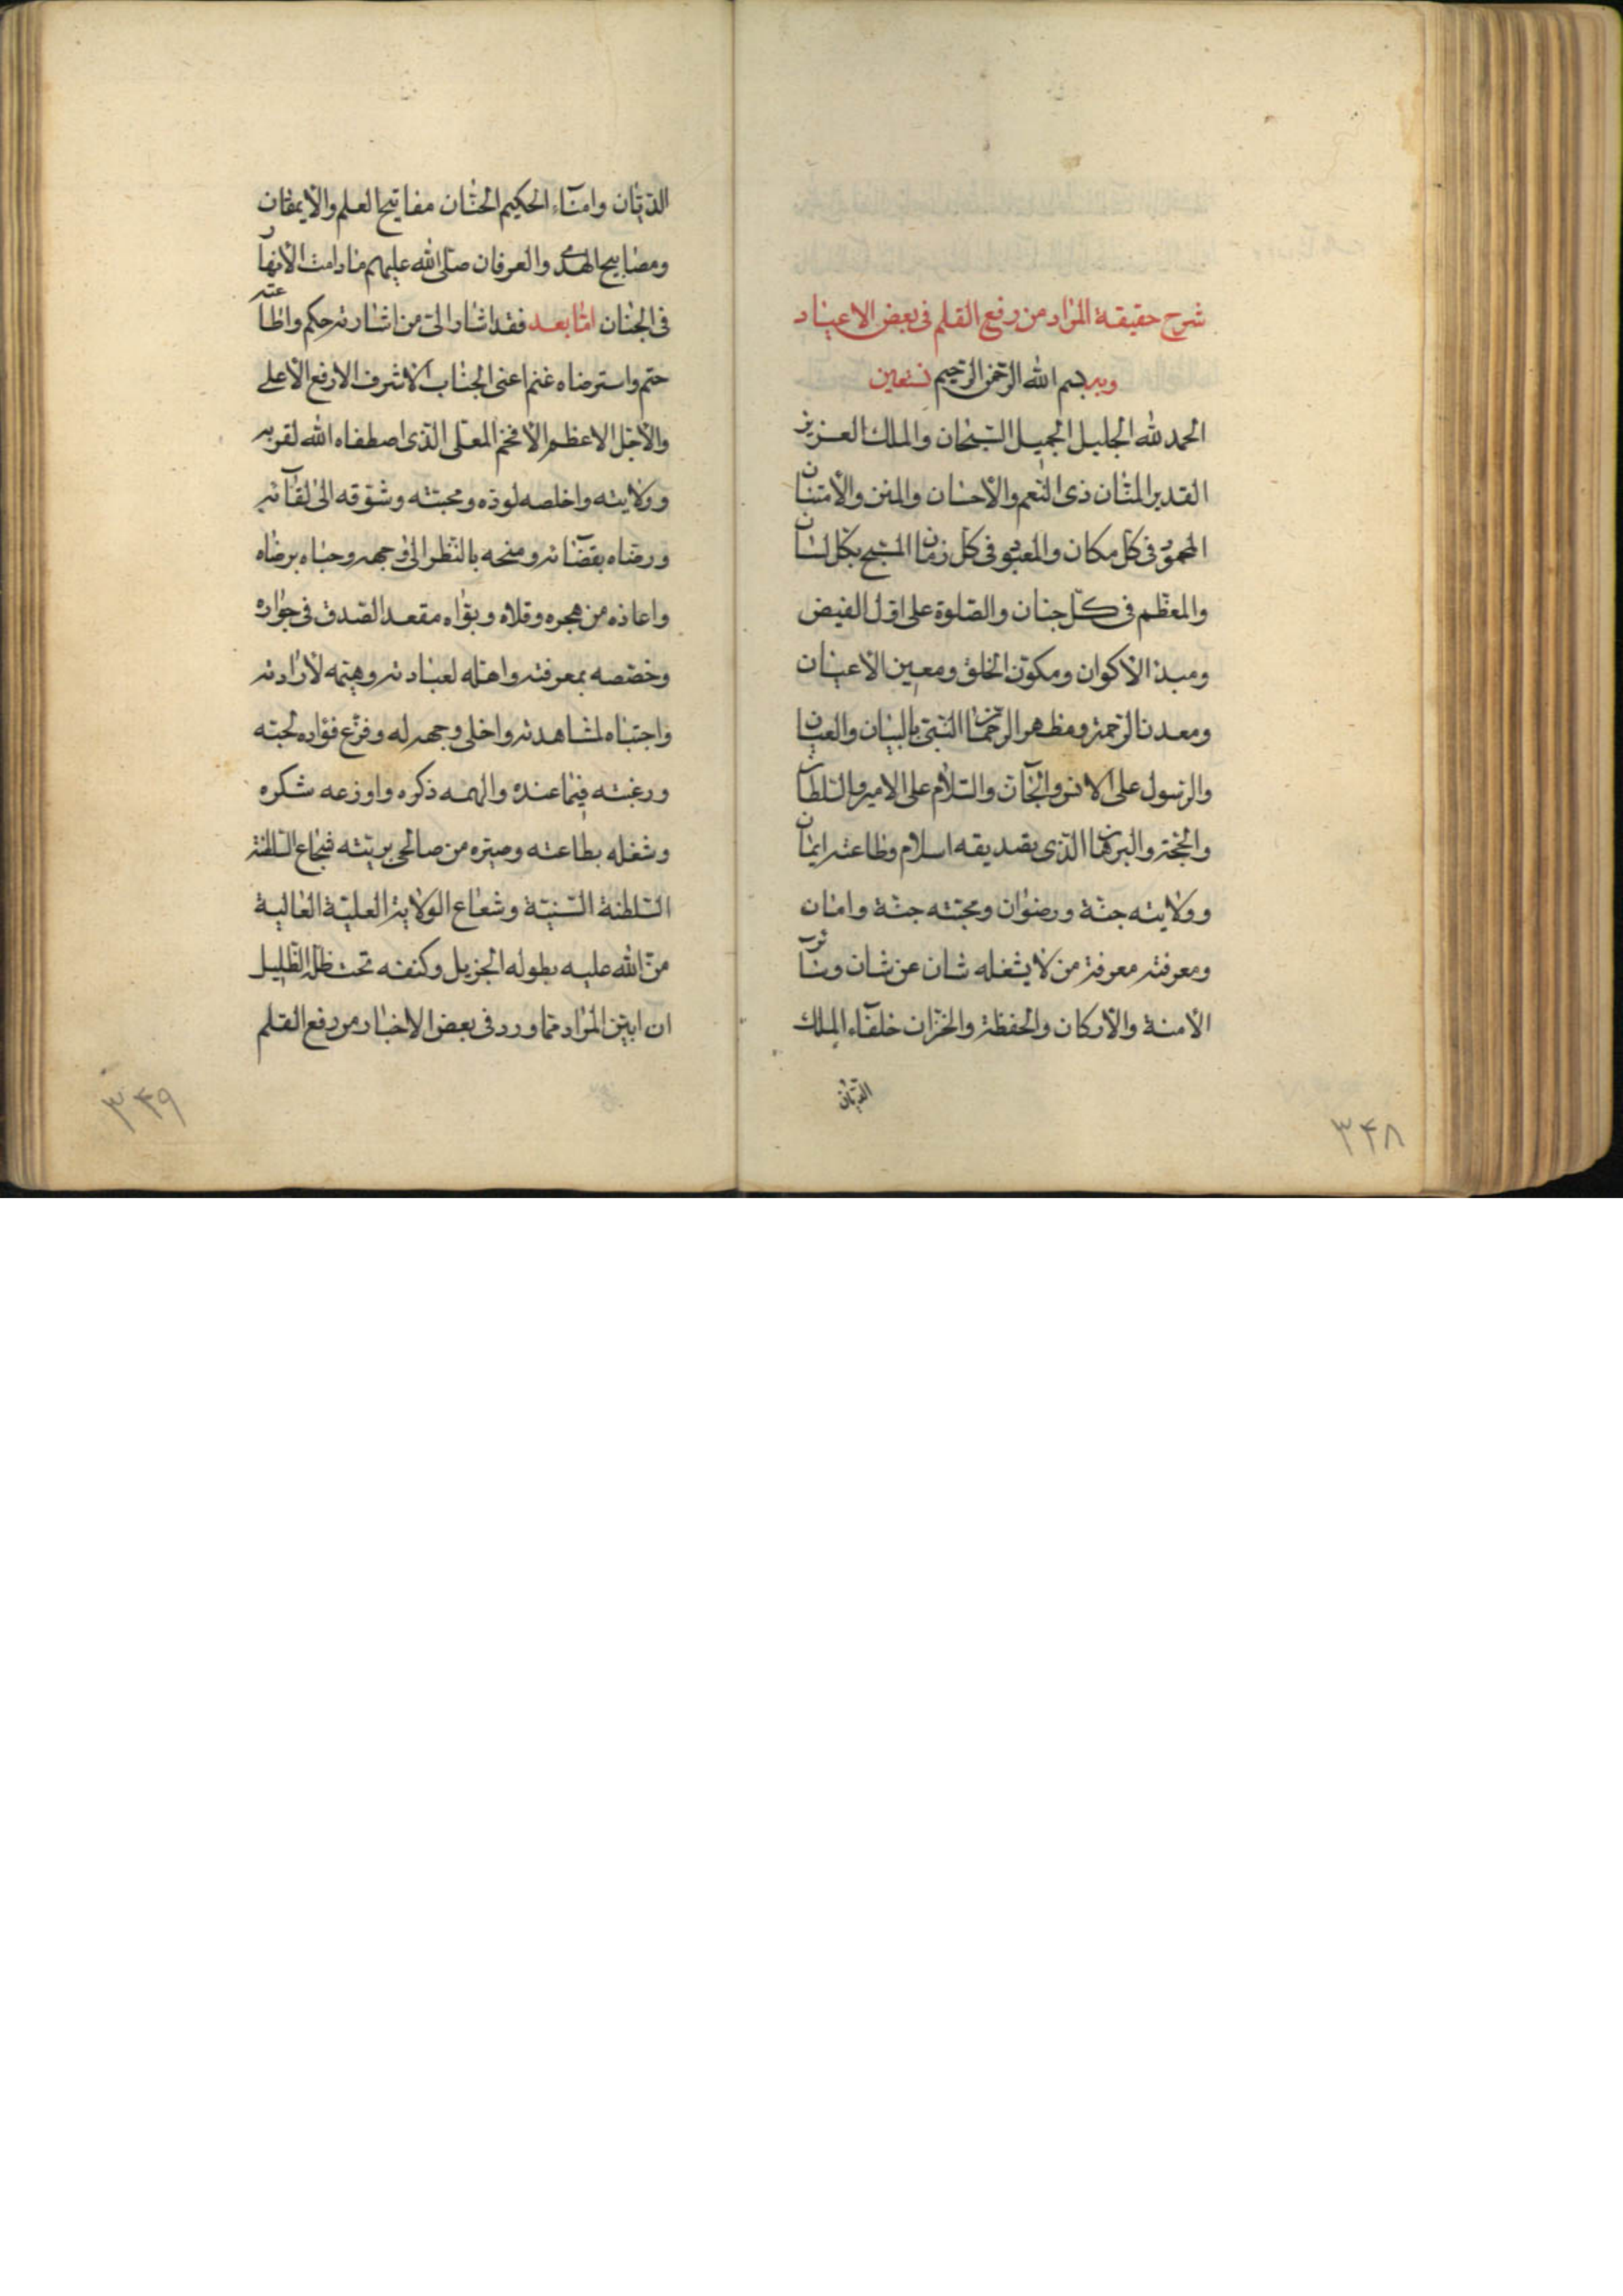 شرح حقيقة المراد من رفع القلم فی بعض الاعیاد
وبه بسم الله الرحمن الرحیم نستعین
الحمد لله الجلیل الجمیل السبحان والملك العزیز
القدیر المنّان ذی النّعم والأحسان والمنن والأمتنان
المحمود فی كلّ مكان والمعبود فی كلّ زمان المسبّح بكلّ لسان
والمعظّم فی كلّ جنان والصّلوة علی اوّل الفیض
ومبدٔ الأكوان ومكوّن الخلق ومعین الأعیان
ومعدن الرّحمة ومظهر الرّحمن النّبیّ بالبیان والعیان
والرّسول علی الانس والجآنّ والسّلام علی الامیر والسّلطان
والحجّة والبرهان الّذی تصدیقه اسلام وطاعته ایمان
وولایته جنّة ورضوان ومحبّته جنّة وامان
ومعرفته معرفة من لا یشغله شان عن شان ونوّابه
الأمنة والأركان والحفظة والخزّان خلفآء الملك
الدّیّان
۳۴۸
الدّیّان وامنآء الحكیم الحنّان مفاتیح العلم والأیقان
ومصابیح الهدی والعرفان صلّی الله علیهم مادامت الأنهار
فی الجنان امّا بعد فقد اشار الیّ من اشارته حكم واطاعته
حتم واسترضاه غنم اعنی الجناب الأشرف الأرفع الأعلی
والأجلّ الاعظم الأفخم المعلّی الّذی اصطفاه الله لقربه
وولایته واخلصه لودّه ومحبّته وشوّقه الی لقآئه
ورضّاه بقضآئه ومنحه بالنّظر الی وجهه وحباه برضاه
واعاذه من هجره وقلاه وبوّاه مقعد الصّدق فی جواره
وخصّصه بمعرفته واهّله لعبادته وهیّمه لأرادته
واجتباه لمشاهدته واخلی وجهه له وفرّغ فؤاده لحبّه
ورغّبته فیما عنده والهمه ذكره واوزعه شكره
وشغله بطاعته وصیّره من صالحی بریّته شجاع السّلطنة
السّلطنة السّنیّة وشعاع الولایة العلیّة العالیة
منّ الله علیه بطوله الجزیل وكنفه تحت ظلّه الظّلیل
ان ابیّن المراد ممّا ورد فی بعض الاخبار من رفع القلم
۳۴۹